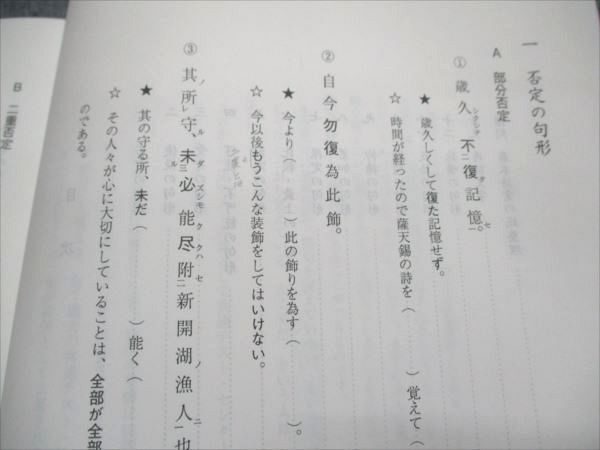 一　否定の句形
A　部分否定
① 歳久不復記憶。
★ 歳久しくして復た記憶せず。
☆ 時間が経ったので薩天錫の詩を（　　　）覚えて（
② 自今勿復為此飾。
★ 今より（　　　）此の飾りを為す（　　　）。
☆ 今以後もうこんな装飾をしてはいけない。
③ 其所守、未必能尽附新開湖漁人也
★ 其の守る所、未だ（　　　）能く（
☆ その人々が心に大切にしていることは、全部が全部
のである。
B　二重否定